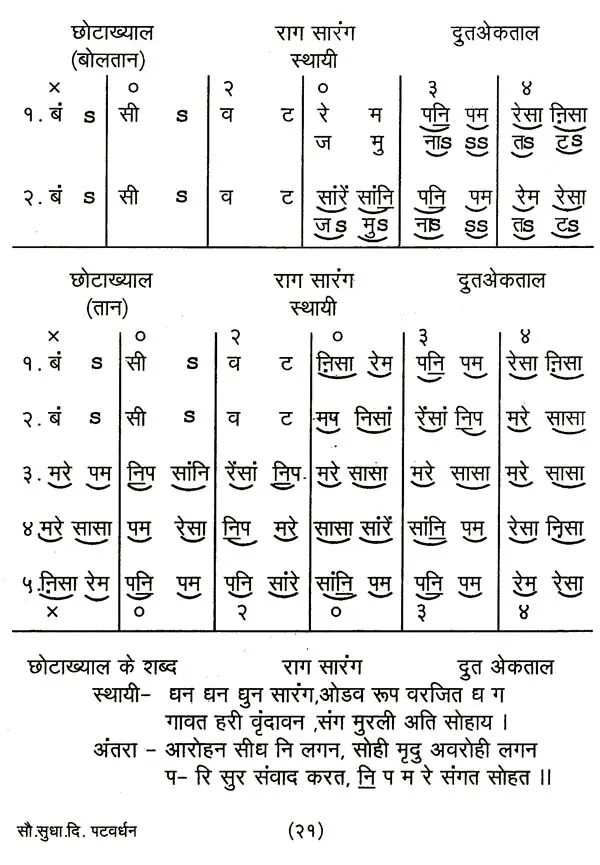 छोटाख्याल राग सारंग द्रुतअेकताल
(बोलतान) स्थायी
× ० २ ० ३ ४
१. बं s सी s व ट रे म पनि॒ पम रेसा नि़सा
ज मु नाs ss तs टs
२. बं s सी s व ट सांरें सांनि॒ पनि॒ पम रेम रेसा
जs मुs नाs ss तs टs
छोटाख्याल राग सारंग द्रुतअेकताल
(तान) स्थायी
× ० २ ० ३ ४
१. बं s सी s व ट नि़सा रेम पनि॒ पम रेसा नि़सा
२. बं s सी s व ट मप निसां रेंसां नि॒प मरे सासा
३. मरे पम नि॒प सांनि रेंसां नि॒प. मरे सासा मरे सासा मरे सासा
४. मरे सासा पम रेसा नि॒प मरे सासा सांरें सांनि॒ पम रेसा नि़सा
५. नि़सा रेम पनि॒ पम पनि॒ सांरे सांनि॒ पम पनि॒ पम रेम रेसा
× ० २ ० ३ ४
छोटाख्याल के शब्द राग सारंग द्रुत अेकताल
स्थायी– धन धन धुन सारंग,ओडव रूप वरजित ध ग
गावत हरी वृंदावन ,संग मुरली अति सोहाय ।
अंतरा – आरोहन सीध नि लगन, सोही मृदु अवरोही लगन
प– रि सुर संवाद करत, नि॒ प म रे संगत सोहत ॥
सौ.सुधा.दि. पटवर्धन (२१)